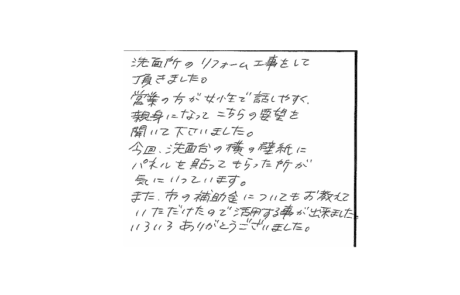 洗面所のリフォーム工事をして
頂きました。
営業の方が女性で話しやすく、
親身になって こちらの要望を
聞いて下さいました。
今回、洗面台の横の壁紙に
パネルを貼ってもらった所が
気にいっています。
また、市の補助金についてもお教えて
いただけたので活用する事が出来ました。
いろいろありがとうございました。